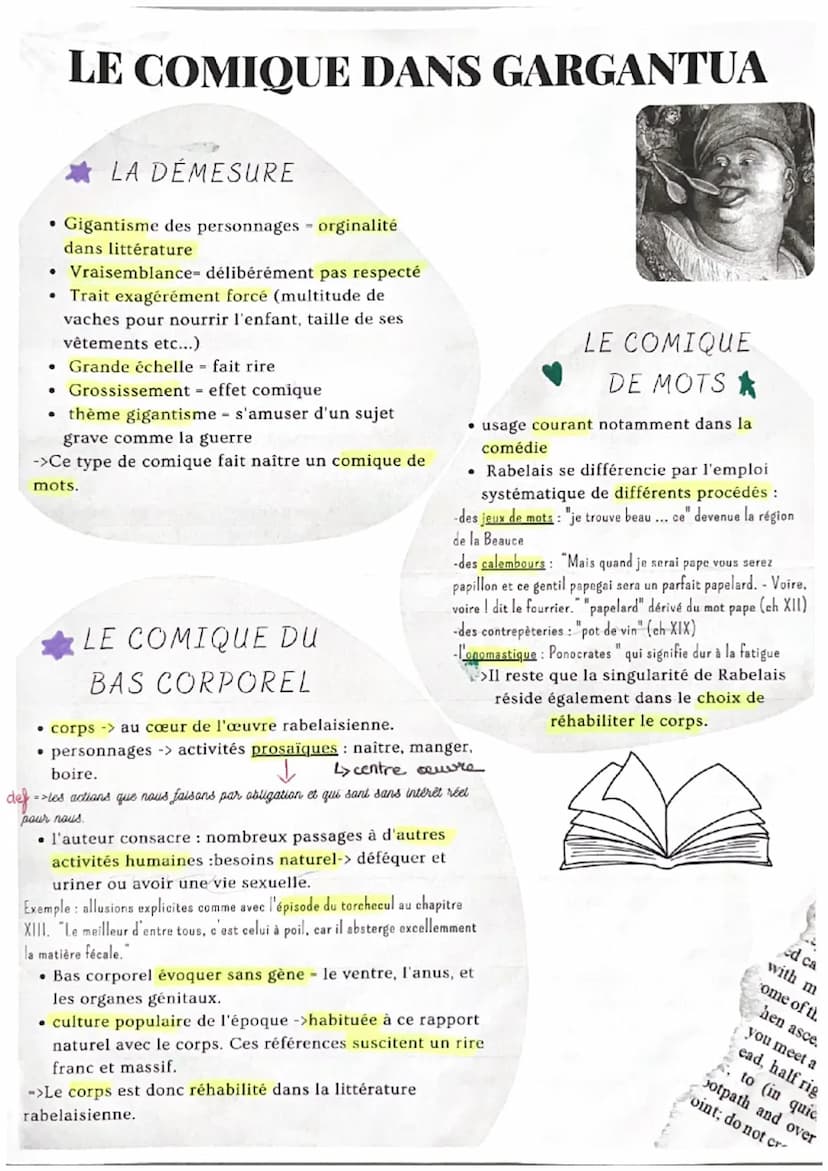 LE COMIQUE DANS GARGANTUA
LA DÉMESURE
• Gigantisme des personnages = orginalité
dans littérature
• Vraisemblance= délibérément pas respecté
• Trait exagérément forcé (multitude de
vaches pour nourrir l'enfant, taille de ses
vêtements etc...)
• Grande échelle = fait rire
• Grossissement = effet comique
• thème gigantisme = s'amuser d'un sujet
grave comme la guerre
->Ce type de comique fait naître un comique de
mots.
LE COMIQUE
DE MOTS
• usage courant notamment dans la
comédie
• Rabelais se différencie par l'emploi
systématique de différents procédés :
-des jeux de mots : "je trouve beau ... ce" devenue la région
de la Beauce
-des calembours : "Mais quand je serai pape vous serez
papillon et ce gentil papegai sera un parfait papelard. - Voire,
voire ! dit le fourrier." "papelard" dérivé du mot pape (ch XII)
-des contrepèteries : "pot de vin" (ch XIX)
-l'onomastique : Ponocrates " qui signifie dur à la fatigue
->Il reste que la singularité de Rabelais
réside également dans le choix de
réhabiliter le corps.
LE COMIQUE DU
BAS CORPOREL
• corps -> au cœur de l'œuvre rabelaisienne.
• personnages -> activités prosaïques : naître, manger,
boire.
↳ centre œuvre
def =>les actions que nous faisons par obligation et qui sont sans intérêt réel
pour nous.
• l'auteur consacre : nombreux passages à d'autres
activités humaines :besoins naturel-> déféquer et
uriner ou avoir une vie sexuelle.
Exemple : allusions explicites comme avec l'épisode du torchecul au chapitre
XIII. "Le meilleur d'entre tous, c'est celui à poil, car il absterge excellemment
la matière fécale."
• Bas corporel évoquer sans gène = le ventre, l'anus, et
les organes génitaux.
• culture populaire de l'époque ->habituée à ce rapport
naturel avec le corps. Ces références suscitent un rire
franc et massif.
=>Le corps est donc réhabilité dans la littérature
rabelaisienne.
ed ca
with m
ome of th
hen asce
you meet a
ead, half rig
, to (in quic
ootpath and over
oint; do not cr